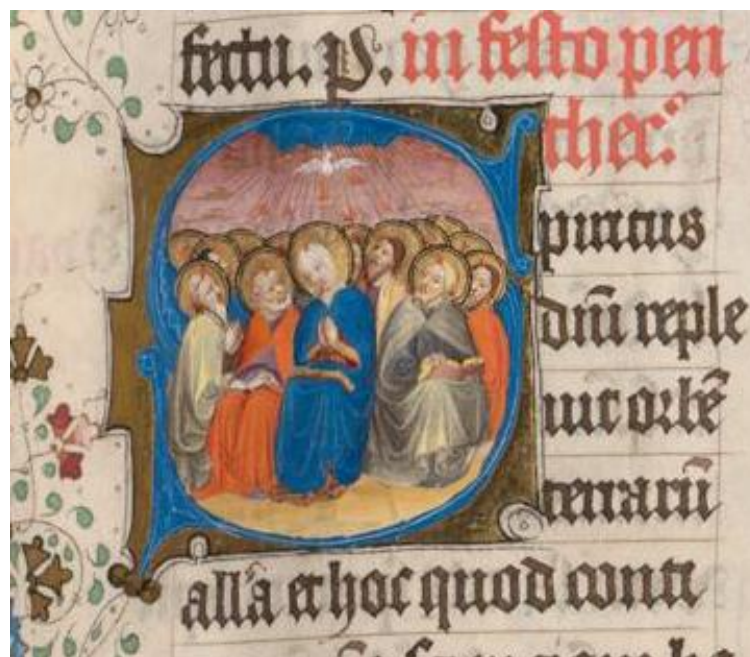 fectu. P. in festo pen
thec.
Spiritus
dn̄i reple
uit orbē
terrarū
all̄a et hoc quod conti